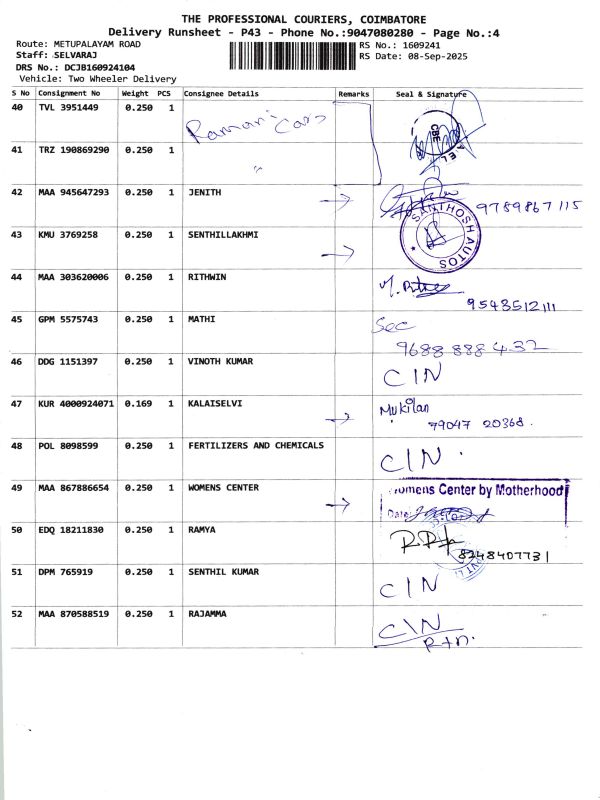 THE PROFESSIONAL COURIERS, COIMBATORE
Delivery Runsheet - P43 - Phone No.:9047080280 - Page No.:4
Route: METUPALAYAM ROAD RS No.: 1609241
Staff: SELVARAJ RS Date: 08-Sep-2025
DRS No.: DCJB160924104
Vehicle: Two Wheeler Delivery
S No Consignment No Weight PCS Consignee Details Remarks Seal & Signature
40 TVL 3951449 0.250 1 Ramani Cars CBE
41 TRZ 190869290 0.250 1 "
42 MAA 945647293 0.250 1 JENITH → 9789867115
SANTHOSH AUTOS
43 KMU 3769258 0.250 1 SENTHILLAKHMI →
44 MAA 303620006 0.250 1 RITHWIN
9543512111
45 GPM 5575743 0.250 1 MATHI Sec
9688 888 432
46 DDG 1151397 0.250 1 VINOTH KUMAR CIN
47 KUR 4000924071 0.169 1 KALAISELVI → Mukilan
79047 20368.
48 POL 8098599 0.250 1 FERTILIZERS AND CHEMICALS CIN
49 MAA 867886654 0.250 1 WOMENS CENTER → Womens Center by Motherhood
Date:
50 EDQ 18211830 0.250 1 RAMYA
8248407731
51 DPM 765919 0.250 1 SENTHIL KUMAR CIN
52 MAA 870588519 0.250 1 RAJAMMA CIN
Rtn.